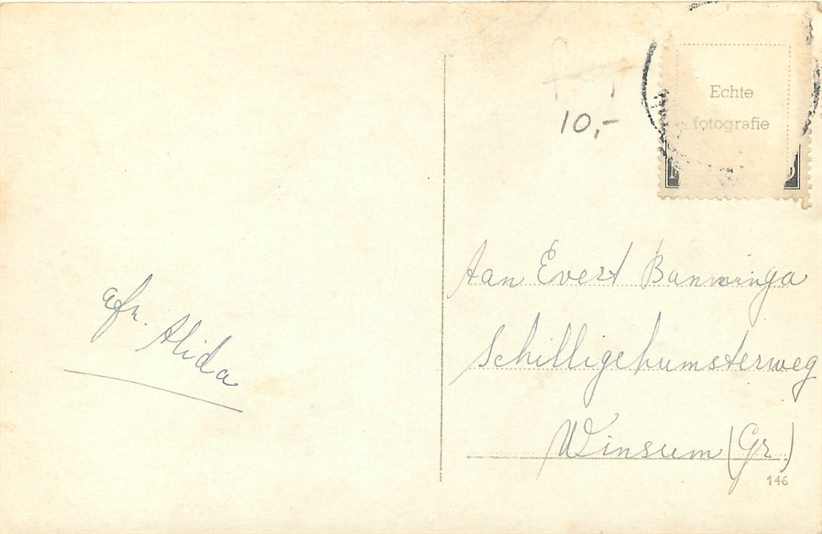 Echte
fotografie
10,-
afz. Alida
Aan Evert
Schilligehumsterweg
Winsum (Gr.)
146